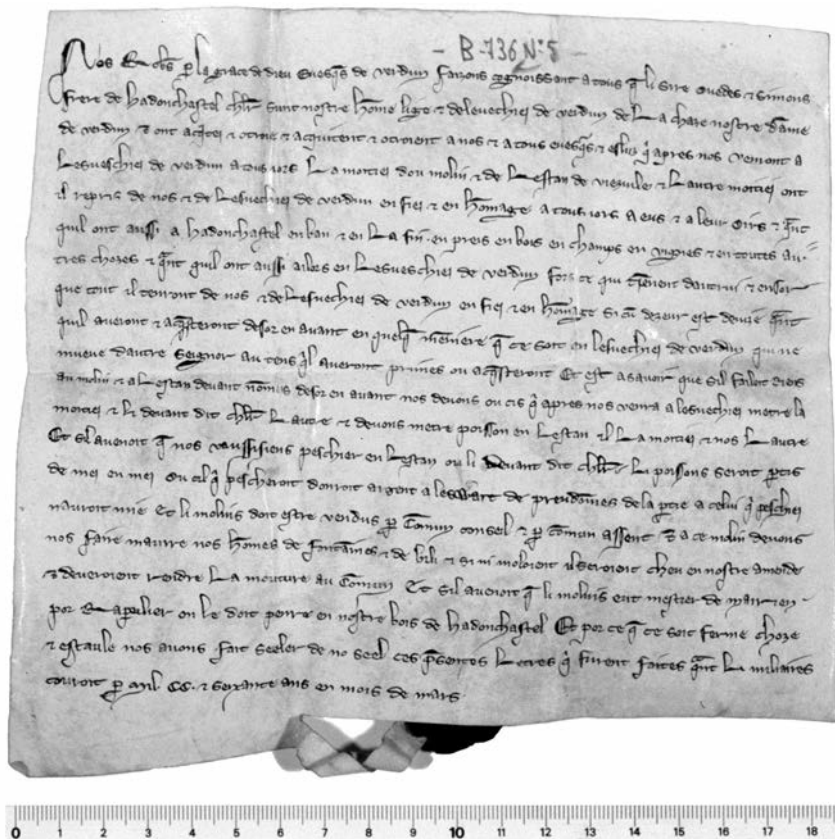 - B-736 N° 5 -
Nos Rob's p la grace de dieu Evesq's de verdun faizons cognoissant a tous q li sire ouedes & simons
frere de hadonchastel chlr sunt nostre home lige & deleuechiei de verdun de La chaze nostre dame
de verdun & ont aq'tei & otroie & aquitent & otroient a nos & a tous euesq's & esluz q' apres nos venront a
Lesueschiei de verdun a tous iors La moitiei dou molin & de Lestan de vieuile & Lautre moitiei ont
il repris de nos & de Lesuechiei de verdun en fiei & en homage a tous iors A eus & a leur oirs & q'nt
quil ont aussi a hadonchastel en ban & en La fin en preis en bois en champs en vignes & en toutes au-
tres chozes & q'nt quil ont aussi ailors en Lesueschiei de verdun fors ce qui tienent dautrui & ensor
que tout il tenront de nos & de Lesuechiei de verdun en fiei & en homage si cu dezeur est deuize q'nt
quil aueront & aq'steront desor en auant en quelq meniere q ce soit en lesuechiei de verdun qui ne
mueue dautre seignor au tens q'l aueront primes ou aq'steront Et est asavoir que sil failoit
au molin & a Lestan deuant nomeis desor en auant nos deuons ou cis q' apres nos venra a lesuechiei metre la
moitiei & li deuant dit chlr Lautre & deuons metre poisson en Lestan il La moitiei & nos Lautre
Et sil auenoit q nos vaussissiens peschier en Lestan ou li deuant dit chlr Li poissons seroit p'tis
de mei en mei Ou cil q' pescheroit donroit argent a leswart de preudomes de la p'tie a celui q' peschiei
nauroit mie Et li molins doit estre vendus p Comun conseil & p comun assent & a ce molin deuons
nos faire maurre nos homes de fontaines & de bili & si ni moloient il seroient cheu en nostre amende
& deueroient rendre La mouture au Comun Et sil auenoit q li molins eut mestier de marrien
por Rapeilier on le doit penre en nostre bois de hadonchastel Et por ce q ce soit ferme choze
& estaule nos auons fait seeler de no seel ces p'sentes Letres q' furent faites q'nt Li miliaires
couroit p mil CC. & sexante ans en mois de mars
0 1 2 3 4 5 6 7 8 9 10 11 12 13 14 15 16 17 18